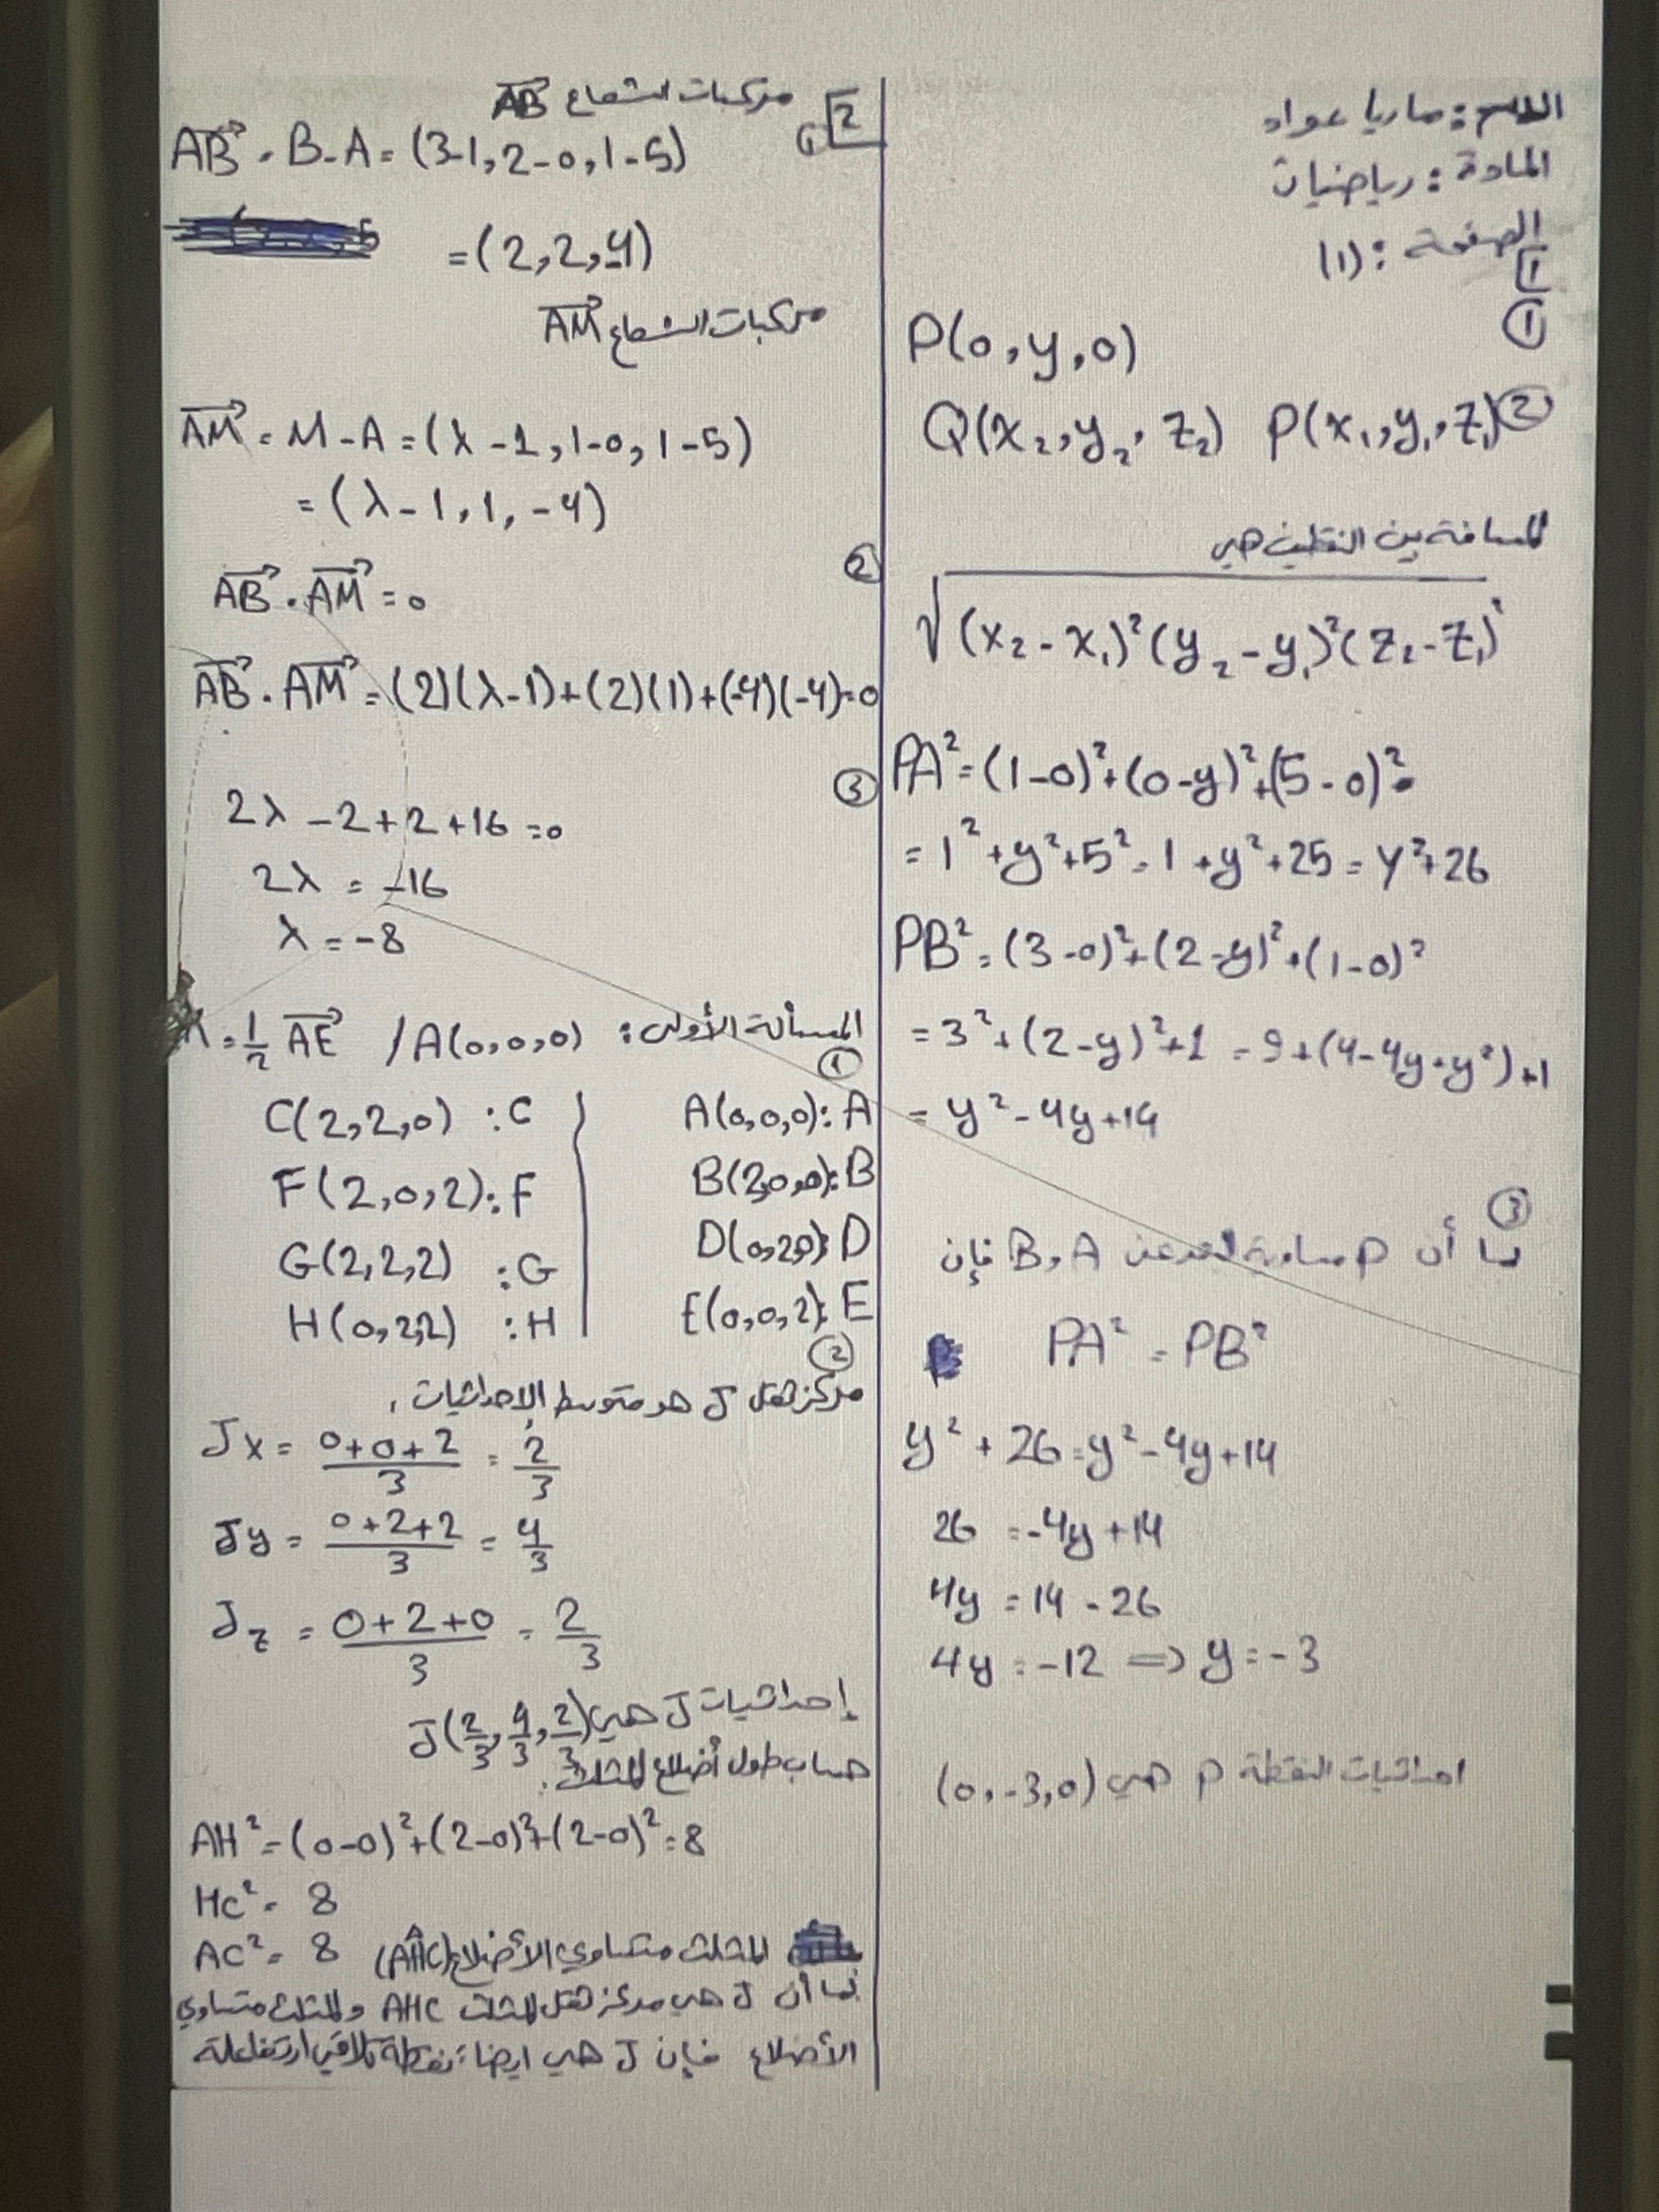 الاسم: ماريا عواد
المادة: رياضيات
الصفحة: (1)
1
①
P(0,y,0)
② Q(x₂,y₂,z₂) P(x₁,y₁,z₁)
المسافة بين النقطتين هي
√(x₂-x₁)²(y₂-y₁)²(z₂-z₁)²
PA²=(1-0)²+(0-y)²+(5-0)²=
=1²+y²+5²=1+y²+25=y²+26
PB²=(3-0)²+(2-y)²+(1-0)²
=3²+(2-y)²+1=9+(4-4y+y²)+1
=y²-4y+14
③
بما أن P متساوية البعد عن B,A فإن
PA²=PB²
y²+26=y²-4y+14
26=-4y+14
4y=14-26
4y=-12 ⟹ y=-3
احداثيات النقطة P هي (0,-3,0)
2
مركبات الشعاع AB→
AB→=B-A=(3-1,2-0,1-5)
=(2,2,-4)
مركبات الشعاع AM→
AM→=M-A=(λ-1,1-0,1-5)
=(λ-1,1,-4)
②
AB→.AM→=0
AB→.AM→=(2)(λ-1)+(2)(1)+(-4)(-4)=0
③
2λ-2+2+16=0
2λ=-16
λ=-8
المسألة الأولى: =½ AE→ /A(0,0,0)
①
A(0,0,0):A C(2,2,0):C
B(2,0,0):B F(2,0,2):F
D(0,2,0):D G(2,2,2):G
E(0,0,2):E H(0,2,2):H
②
مركز ثقل J هو متوسط الإحداثيات
Jx=(0+0+2)/3=2/3
Jy=(0+2+2)/3=4/3
Jz=(0+2+0)/3=2/3
إحداثيات J هي J(2/3,4/3,2/3)
حساب طول أضلاع المثلث:
AH²=(0-0)²+(2-0)²+(2-0)²=8
HC²=8
AC²=8 المثلث متساوي الأضلاع (AĤC)
بما أن J هي مركز ثقل المثلث AHC والمثلث متساوي
الأضلاع فإن J هي ايضا: نقطة تلاقي ارتفاعاته